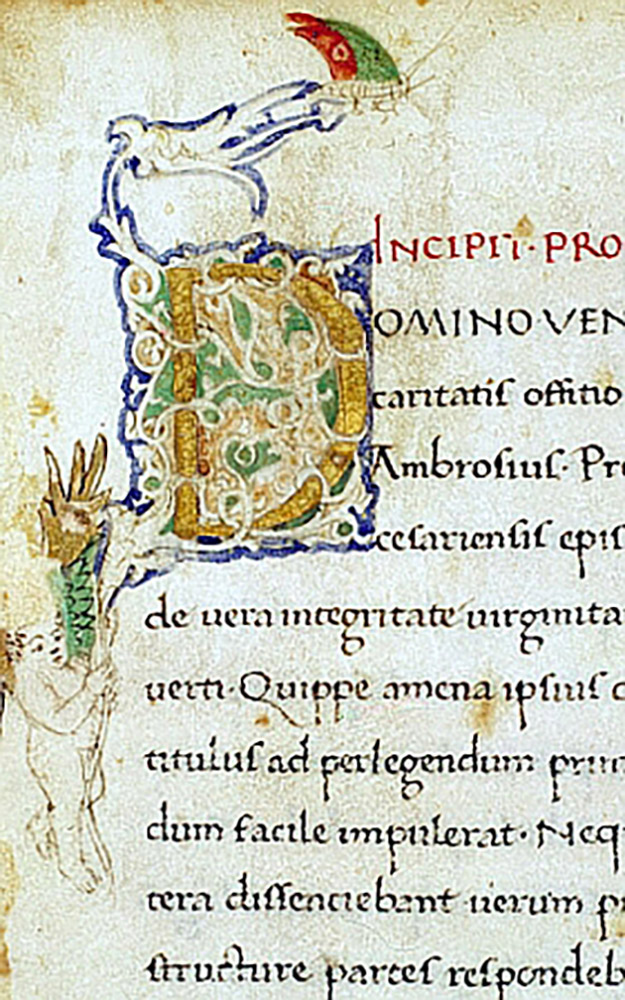 INCIPIT·PRO
DOMINO·VEN
caritatiſ offitio
Ambroſiuſ· Pre
ceſarienſiſ epiſ
de uera integritate uirginita
uerti· Quippe amena ipſiuſ
tituluſ ad perlegendum
dum facile impulerat· Neq
tera diſſenciebant uerum p
ſtructure parteſ reſpondeb